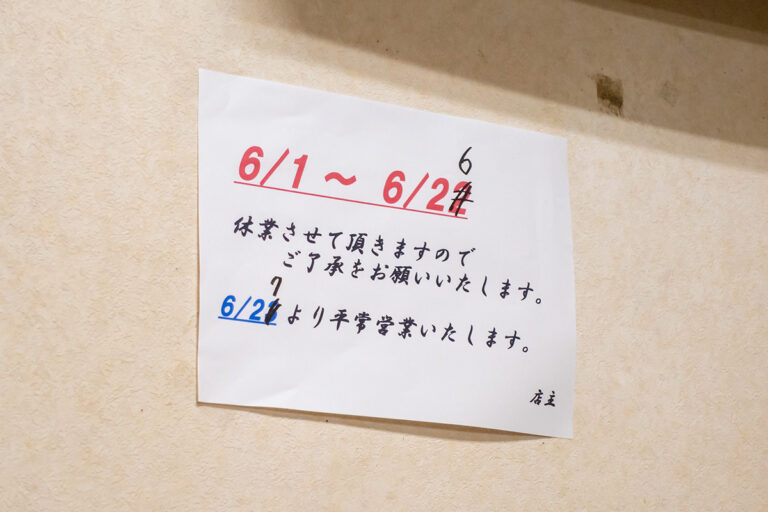 6/1 ～ 6/26
休業させて頂きますので
ご了承をお願いいたします。
6/27より平常営業いたします。
店主